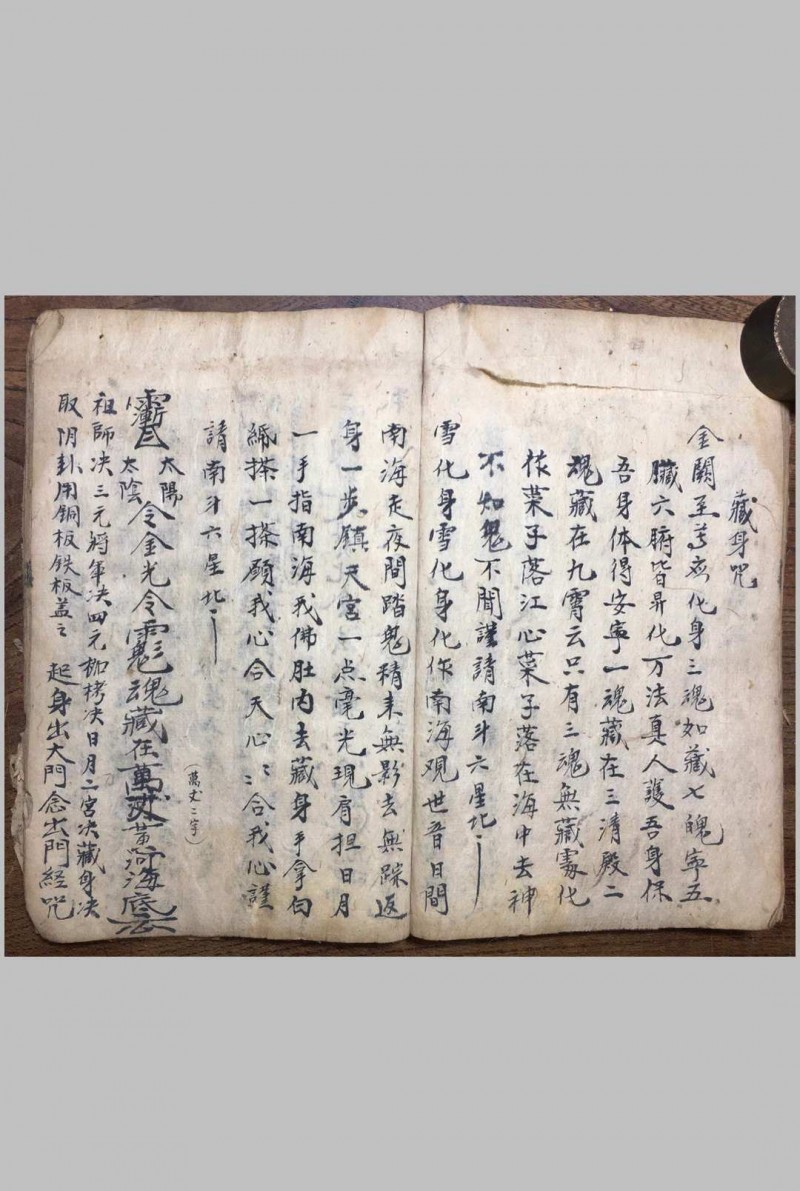 藏身咒
金闕至尊 化身三魂如藏七魄寧五
臟六腑皆昇化万法真人護吾身保
吾身体得安寧一魂藏在三清殿二
魂藏在九霄云只有三魂無藏處化
作菜子落江心菜子落在海中去神
不知鬼不聞謹請南斗六星北
雪化身雪化身化作南海观世音日間
南海走夜間踏鬼精来無影去無踪返
身一步鎮天宮一点毫光現肩担日月
一手指南海我佛肚内去藏身手拿白
紙搽一搽願我心合天心〻合我心謹
請南斗六星北
(萬丈二字)
太陽
太陰
令金光令 魂藏在萬丈黄河海底去
祖師决三元將軍决四元枷栲决日月二宮决藏身决
取阴卦用铜板鉄板盖之 起身出大門念出門経咒